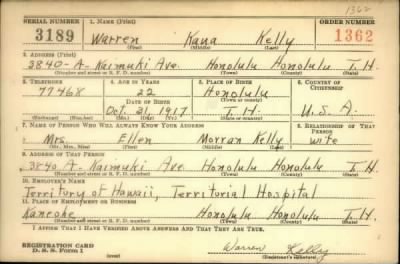 1362
SERIAL NUMBER 1. NAME (Print) ORDER NUMBER
3189 Warren Kana Kelly 1362
(First) (Middle) (Last)
2. ADDRESS (Print)
3840-A- Kaimuki Ave. Honolulu Honolulu T.H.
(Number and street or R. F. D. number) (Town) (County) (State)
3. TELEPHONE 4. AGE IN YEARS 5. PLACE OF BIRTH 6. COUNTRY OF CITIZENSHIP
77468 22 Honolulu
DATE OF BIRTH (Town or county)
Oct. 31 1917 T.H. U.S.A.
(Exchange) (Number) (Mo.) (Day) (Yr.) (State or country)
7. NAME OF PERSON WHO WILL ALWAYS KNOW YOUR ADDRESS 8. RELATIONSHIP OF THAT PERSON
Mrs. Ellen Morran Kelly wife
(Mr., Mrs., Miss) (First) (Middle) (Last)
9. ADDRESS OF THAT PERSON
3840 A- Kaimuki Ave Honolulu Honolulu T.H.
(Number and street or R. F. D. number) (Town) (County) (State)
10. EMPLOYER'S NAME
Territory of Hawaii, Territorial Hospital
11. PLACE OF EMPLOYMENT OR BUSINESS
Kaneohe Honolulu Honolulu T.H.
(Number and street or R. F. D. number) (Town) (County) (State)
I AFFIRM THAT I HAVE VERIFIED ABOVE ANSWERS AND THAT THEY ARE TRUE.
REGISTRATION CARD
D. S. S. Form 1 Warren Kelly
(Registrant's signature)